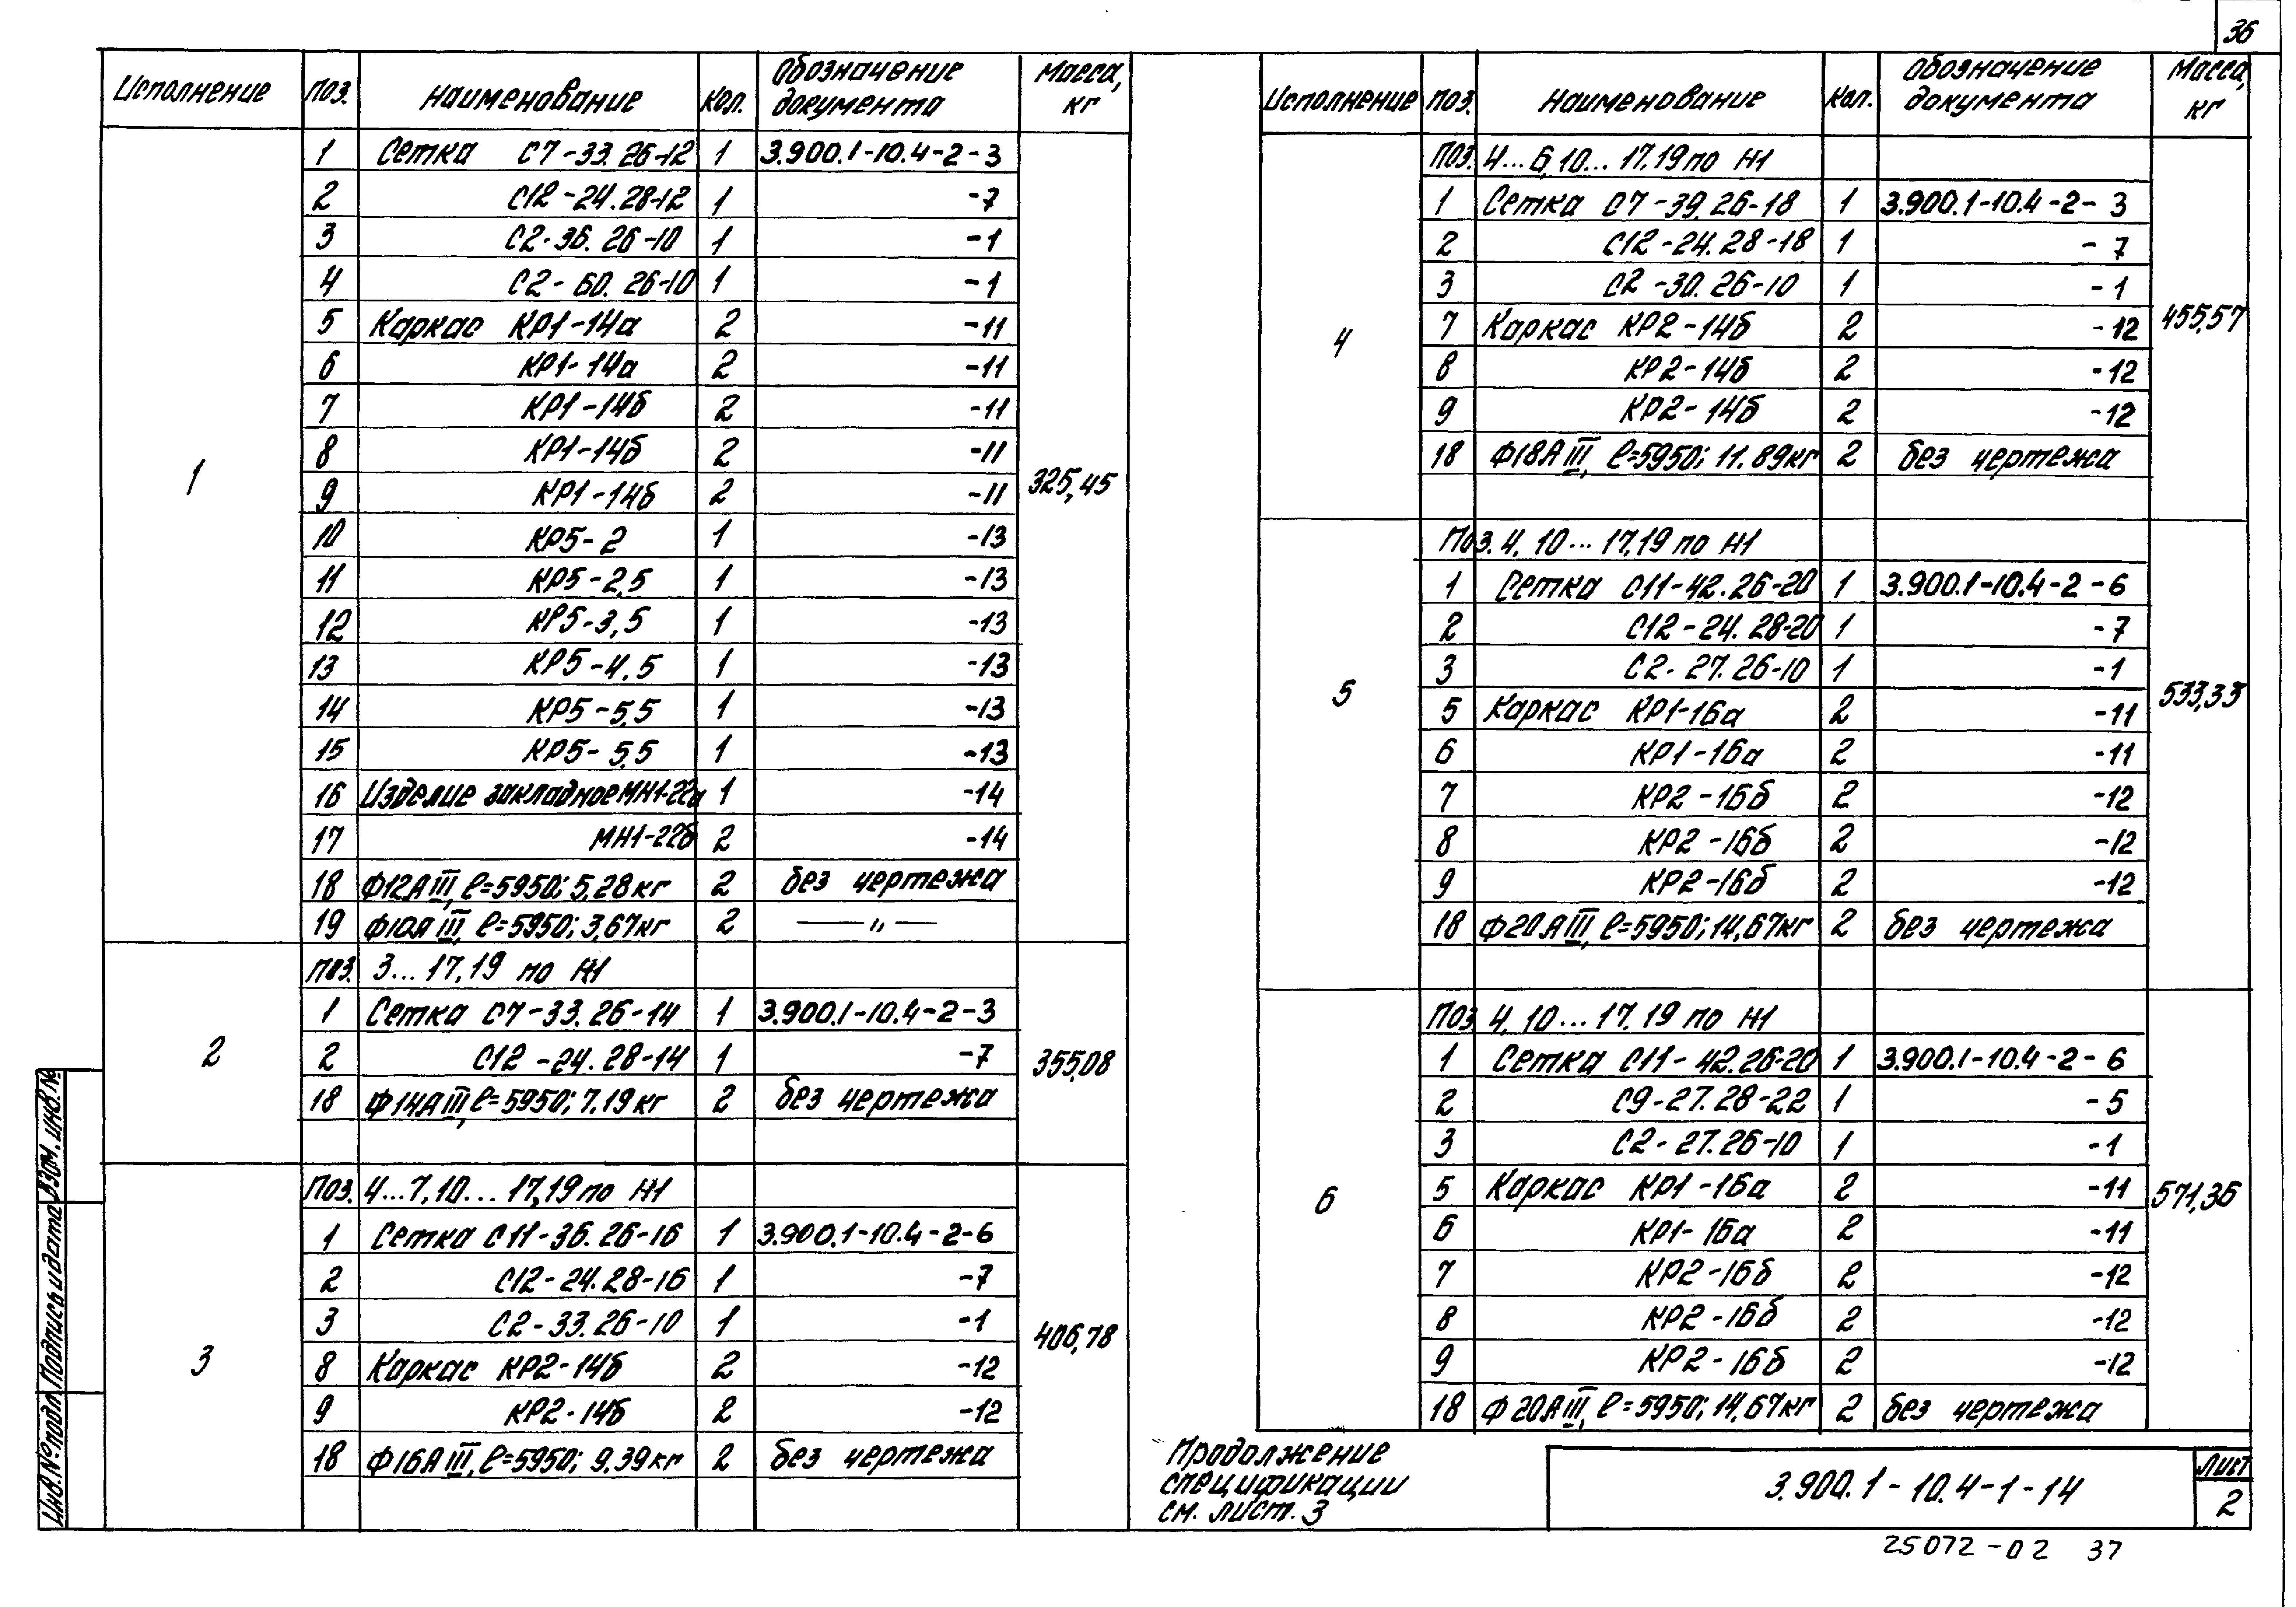 36
Исполнение Поз. Наименование Кол. Обозначение документа Масса, кг
1 325,45
1 Сетка С7-33.26-12 1 3.900.1-10.4-2-3
2 С12-24.28-12 1 -7
3 С2-36.26-10 1 -1
4 С2-60.26-10 1 -1
5 Каркас КР1-14а 2 -11
6 КР1-14а 2 -11
7 КР1-14б 2 -11
8 КР1-14б 2 -11
9 КР1-14б 2 -11
10 КР5-2 1 -13
11 КР5-2,5 1 -13
12 КР5-3,5 1 -13
13 КР5-4,5 1 -13
14 КР5-5,5 1 -13
15 КР5-5,5 1 -13
16 Изделие закладное МН1-22а 1 -14
17 МН1-22б 2 -14
18 Ф12АIII, ℓ=5950; 5,28кг 2 без чертежа
19 Ф10АIII, ℓ=5950; 3,67кг 2 — " —
2 355,08
поз. 3...17,19 по И1
1 Сетка С7-33.26-14 1 3.900.1-10.4-2-3
2 С12-24.28-14 1 -7
18 Ф14АIII, ℓ=5950; 7.19кг 2 без чертежа
3 406,78
Поз. 4...7,10...17,19 по И1
1 Сетка С11-36.26-16 1 3.900.1-10.4-2-6
2 С12-24.28-16 1 -7
3 С2-33.26-10 1 -1
8 Каркас КР2-14б 2 -12
9 КР2-14б 2 -12
18 Ф16АIII, ℓ=5950; 9.39кг 2 без чертежа
Исполнение Поз. Наименование Кол. Обозначение документа Масса, кг
4 455,57
Поз. 4...6,10...17,19 по И1
1 Сетка С7-39.26-18 1 3.900.1-10.4-2-3
2 С12-24.28-18 1 -7
3 С2-30.26-10 1 -1
7 Каркас КР2-14б 2 -12
8 КР2-14б 2 -12
9 КР2-14б 2 -12
18 Ф18АIII, ℓ=5950; 11.89кг 2 без чертежа
5 533,33
Поз. 4, 10...17,19 по И1
1 Сетка С11-42.26-20 1 3.900.1-10.4-2-6
2 С12-24.28-20 1 -7
3 С2-27.26-10 1 -1
5 Каркас КР1-16а 2 -11
6 КР1-16а 2 -11
7 КР2-16б 2 -12
8 КР2-16б 2 -12
9 КР2-16б 2 -12
18 Ф20АIII, ℓ=5950; 14,67кг 2 без чертежа
6 571,36
Поз. 4, 10...17,19 по И1
1 Сетка С11-42.26-20 1 3.900.1-10.4-2-6
2 С9-27.28-22 1 -5
3 С2-27.26-10 1 -1
5 Каркас КР1-16а 2 -11
6 КР1-16а 2 -11
7 КР2-16б 2 -12
8 КР2-16б 2 -12
9 КР2-16б 2 -12
18 Ф20АIII, ℓ=5950; 14,67кг 2 без чертежа
Продолжение
спецификации
см. лист. 3
3.900.1-10.4-1-14
Лист
2
25072-02 37
Взам. инв. №
Подпись и дата
Инв. № подл.